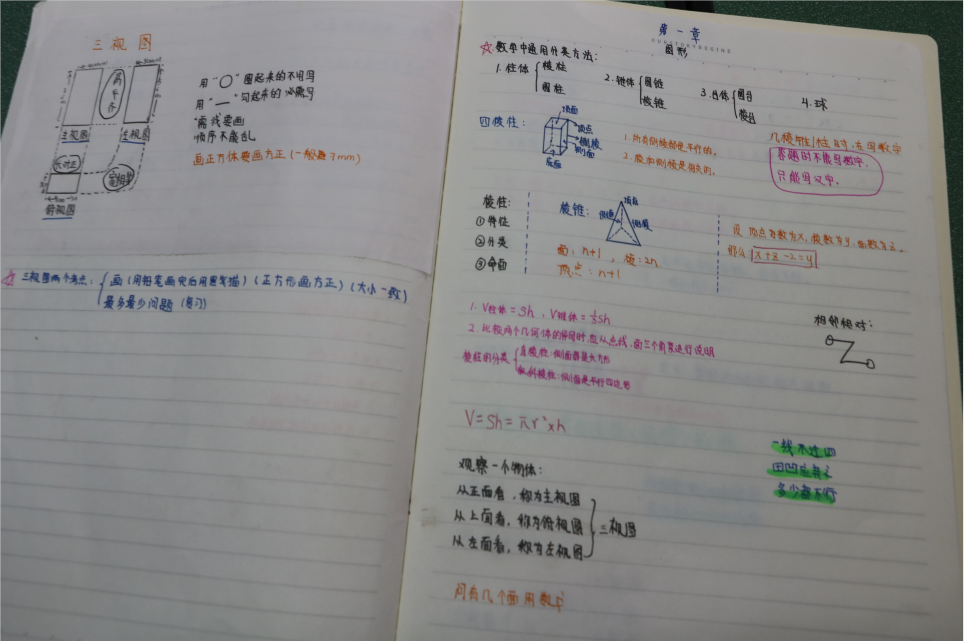 三视图
高平齐
主视图
左视图
长对正
宽相等
俯视图
用“○”圈起来的不用写
用“—”勾起来的必需写
虚线要画
顺序不能乱
画正方体要画方正(一般最3mm)
☆三视图两个考点:
画(用铅笔画完后用黑笔描)(正方形画方正)(大小一致)
最多最少问题(复习)
第一章
图形
☆数学中通用分类方法:
1.柱体 棱柱 圆柱
2.锥体 圆锥 棱锥
3.台体 圆台 棱台
4.球
四棱柱:
顶面
顶点
侧棱
侧面
底面
1.所有侧棱都是平行的。
2.底面
几棱锥/柱时,在写数字
答题时不能写数字,
只能写汉字。
棱柱:
①特征
②分类
③命面
棱锥:
顶点
侧面
侧棱
面:n+1,棱:2n
顶点:n+1
设顶点有数为x,棱数为y,面数为z,
那么 x+z-2=y
1.V柱体=Sh,V锥体=⅓Sh
2.比较两个几何体的异同时,应从点,线,面三个角度进行说明
棱柱的分类
直棱柱:侧面都是长方形
斜棱柱:侧面是平行四边形
相邻相对:
V=Sh=πr²×h
一线不过四
田凹应弃之
多少都不行
观察一个物体:
从正面看,称为主视图
从上面看,称为俯视图
从左面看,称为左视图
三视图
问有几个面用数字